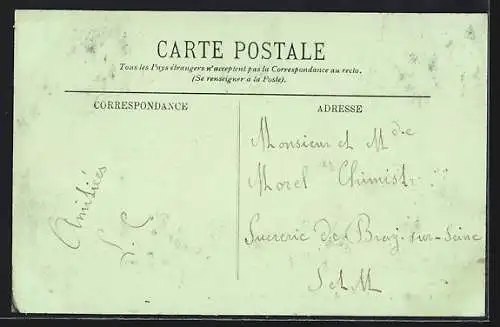 CARTE POSTALE
Tous les Pays étrangers n'acceptent pas la Correspondance au recto.
(Se renseigner à la Poste).
CORRESPONDANCE
Amitiées
L. C
ADRESSE
Monsieur et Mde
Morel Chimist
Sucrerie de Bray-sur-Seine
S et M